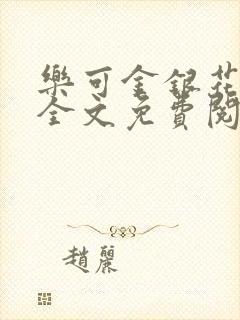 樂可金銀花
全文免費閱
趙麗